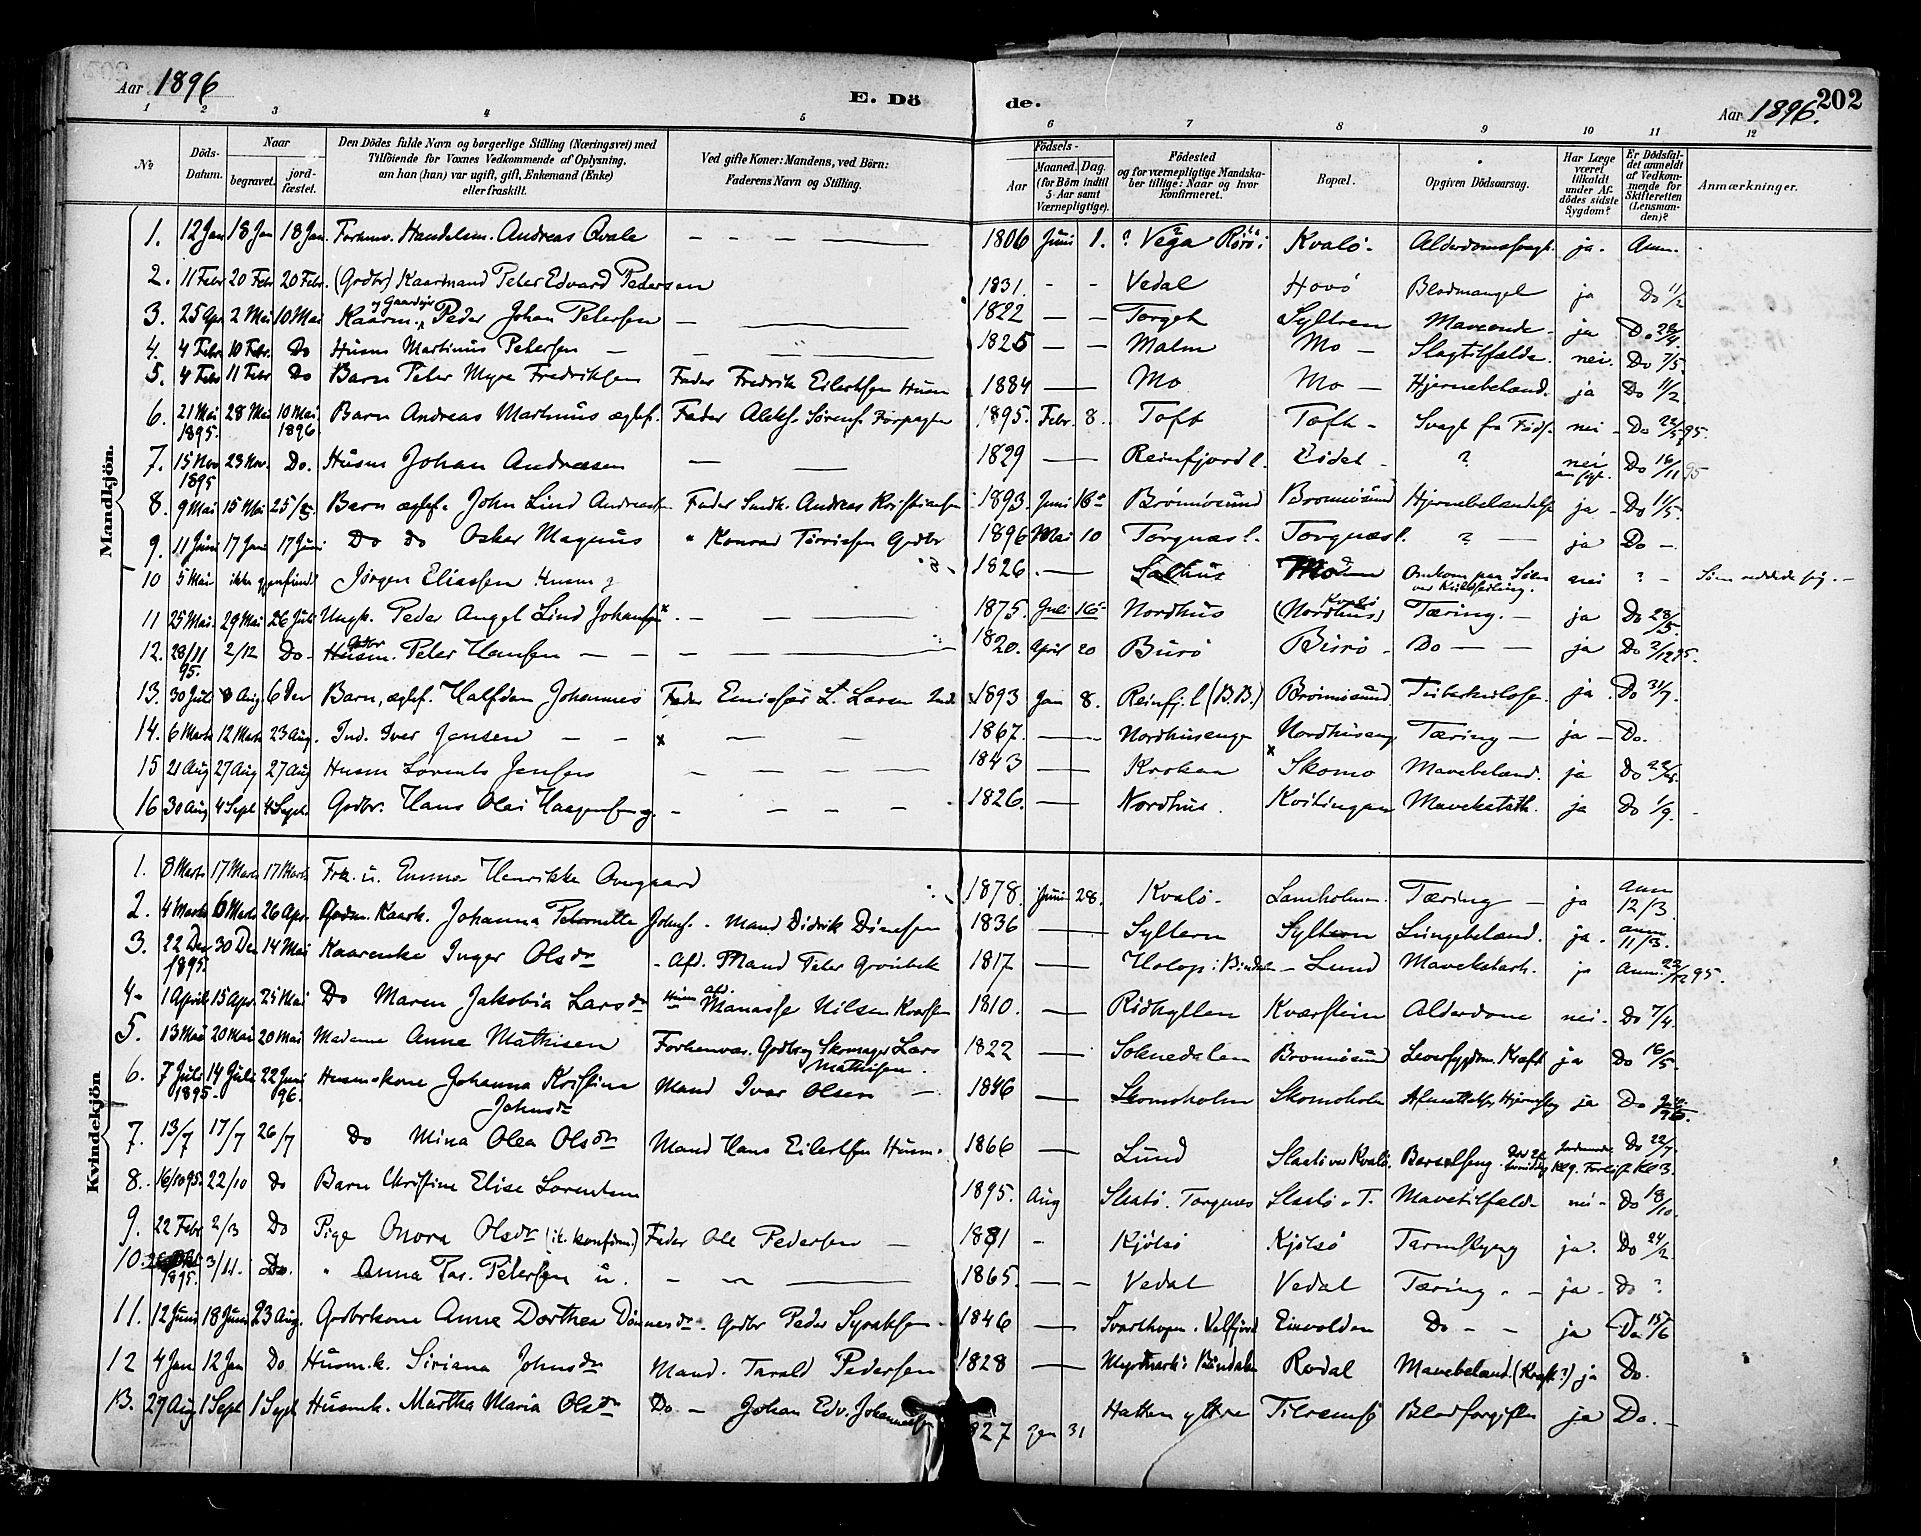 Aar 1896 E. Dö
de. Aar 1896. 202
1 2 3 4 5 6 7 8 9 10 11 12
No Döds-Datum. Naar begravet. jord-fæstet. Den Dödes fulde Navn og borgerlige Stilling (Næringsvei) med Tilföiende for Voxnes Vedkommende af Oplysning, om han (hun) var ugift, gift, Enkemand (Enke) eller fraskilt. Ved gifte Koner: Mandens, ved Börn: Faderens Navn og Stilling. Födsels- Aar Maaned. Dag. (for Börn indtil 5 Aar samt Værnepligtige). Födested og for værnepligtige Mandskaber tillige: Naar og hvor konfirmeret. Bopæl. Opgiven Dödsaarsag. Har Læge været tilkaldt under Afdödes sidste Sygdom? Er Dödsfaldet anmeldt af Vedkommende for Skifteretten (Lensmanden)? Anmærkninger.
Mandkjön.
1. 12 Jan 18 Jan 18 Jan. Forhenv. Handelsm. Andreas Qvale — 1806 Juni 1. ? Vega Kvalö. Alderdomssvagh. ja. Anm.
2. 11 Febr 20 Febr 20 Febr. (Gdbr) Kaarmand Peter Edvard Pedersen 1831. — — Vedal Hovö Blodmangel ja Do 11/2
3. 25 Apr 2 Mai 10 Mai Kaarm. Peder Johan Petersen — 1822 — — Torget Syltren Maveonde. ja Do 28/4.
4. 4 Febr 10 Febr. Do Husm Martinus Petersen — 1825 — — Malm Mo — Slagtilfælde. nei. Do 7/5.
5. 4 Febr 11 Febr Do Barn Peter Myre Fredriksen Fader Fredrik Eilertsen Husm 1884 — Mo Mo — Hjernebetænd. ja Do 11/2
6. 21 Mai 1895. 28 Mai 10 Mai 1896. Barn Andreas Martinus ægtef. Fader Sörens. Forpagter 1895. Febr. 8. Toft Toft — Svagt fra Föds. nei — Do 22/5 95.
7. 15 Nov 1895 23 Nov. Do. Husm Johan Andreasen — 1829 — Reinfjord Eidet — ? nei Do 16/11 95
8. 9 Mai 15 Mai 25/5. Barn ægtef. John Lind Andreasen Fader Andreas Kristiansen 1893. Juni 16 Brönnösund Brönnösund Hjernebetændelse ja — Do 11/5.
9. 11 Juni 17 Juni 17 Juni Do do Oskar Magnus " Konrad Gdbr 1896 Mai 10 Torgnæs Torgnæs ? — ja Do —
10 5 Mai ikke gjenfunden Jörgen Eliassen Husm g 1826. — Salhus Omkom paa Söen ved Kuldseiling. nei ? —
11 25 Mai. 29 Mai 26 Juli Ungk. Peder Angel Lind Johansen — 1875. Juli 16 Nordhus (Nordhus) Tæring. — ja Do 28/5.
12. 28/11 95. 2/12 Do. Gdbr Peter Hansen — — 1820. April 20 Burö Burö — Do — — ja Do 2/12 95.
13. 30 Juli 8 Aug 6 Barn, ægtef. Halfdan Johannes Fader L. Larsen 1893 Jan 8. Reinfj. (B.B.) Brönnösund Tuberkulose ja. Do 31/7.
14. 6 Marts 12 Marts 23 Aug. Ind. Iver Jensen — — 1867. — Nordhuseng Nordhuseng Tæring — ja — Do.
15 21 Aug 27 Aug 27 Aug Husm Lorents Jensen — 1843 — Krokan Skomo Mavebetænd. ja Do
16 30 Aug 4 Sept 4 Sept. Gdbr. Hans Olai Haagensen g. — 1826. — Nordhus. Kvitingan Mavekatarh. ja Do 1/9.
Kvindekjön
1. 8 Marts 17 Marts 17 Marts. Frk. u. Emma Henrikke Overgaard 1878. Juni 28. Kvalö. Lamholmen. Tæring — ja Anm 12/3.
2. 4 Marts 6 Marts 26 Apr. Kaark. Johanna Petronille Mand Didrik Dinesen 1836 — Syltern Syltern Lungebetænd. ja. anm 11/3.
3. 22 Des 1895. 30 Des 14 Mai Kaarenke Inger Olsdtr — Afd. Mand Peter 1817 — i Bindalen — Lund Mavekatarh. ja Anm. 23/12 95.
4. 1 April 15 Apr. 25 Mai Do Maren Jakobia Larsdtr Husm afd. Manasse Nilsen 1810. — Ridhyllen Kværstein Alderdom nei. Do 7/4.
5. 13 Mai 20 Mai 20 Mai Madame Anna Mathisen Forhenvær. Gdbr og Skomager Lars Mathisen. 1822 — Soknedalen Brönnösund Leversygdom. Kræft ja Do 16/5.
6. 7 Juli 1895. 14 Juli 22 Juni 96. Husmskone Johanna Kristine Johnsdtr Mand Ivar Olsen — 1846 — Skomoholm Skomoholm ja Do
7. 13/7 17/7 26/7 Do Mina Olea Olsdtr Mand Hans Eilertsen Husm. 1866 — Lund Slaatö ved Kvalö. Barselseng. Do 22/7.
8. 16/10 95. 22/10 Do Barn Christine Elise Lorentsen 1895. Aug Slaatö. Torgnes Slaatö T. Mavetilfælde nei. Do 18/10.
9. 22 Febr 2/3 Do Pige Onora Olsdtr (ik. konfirm.) Fader Ole Pedersen — 1881 — Kjölsö Kjölsö Tarmslyng ja. Do 24/2
10. 1895. 3/11. Do. " Anna Petersen u. — 1865. — — Vedal Vedal Tæring. — ja. Do ?
11. 12 Juni 18 Juni 23 Aug. Gdbrkone Anne Dorthea Dönnesdtr. Gdbr Peder 1846 — Svarthopen. Velfjord Eivolden Do — — ja Do 15/6
12 4 Jan 12 Jan Do Husm.k. Siriana Johnsdtr Mand. Tarald Pedersen 1828 — i Bindalen Rodal Mavebetænd. (Kræft?) ja Do.
13. 27 Aug 1 Sept 1 Sept Husmk. Martha Maria Olsdtr Do — Johan Edv. Johannessen 827 31 Hatten yttre Tilremsö Blodforgiftn ja Do. —